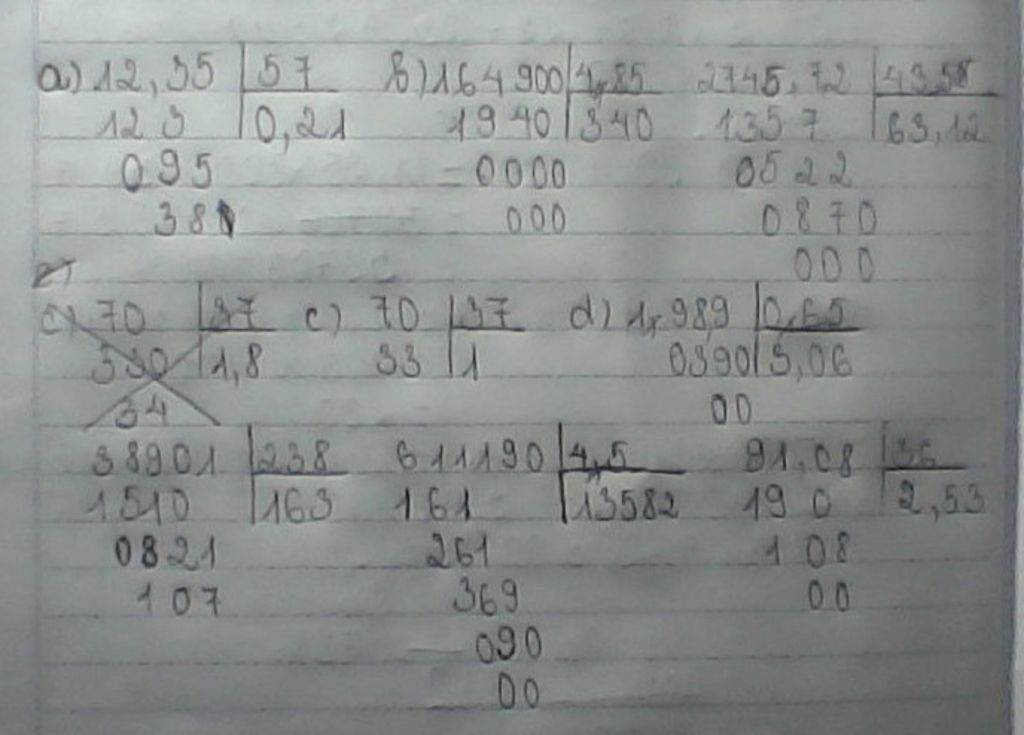 a) 12,35 57 b) 164900 4,85 2745,72 43,58
123 0,21 1940 340 1357 63,12
095 0000 0522
38 000 0870
000
c) 70 37 c) 70 37 d) 1,989 0,65
330 1,8 33 1 0390 3,06
34 00
38901 238 611190 4,5 91,08 36
1510 163 161 13582 190 2,53
0821 261 108
107 369 00
090
00